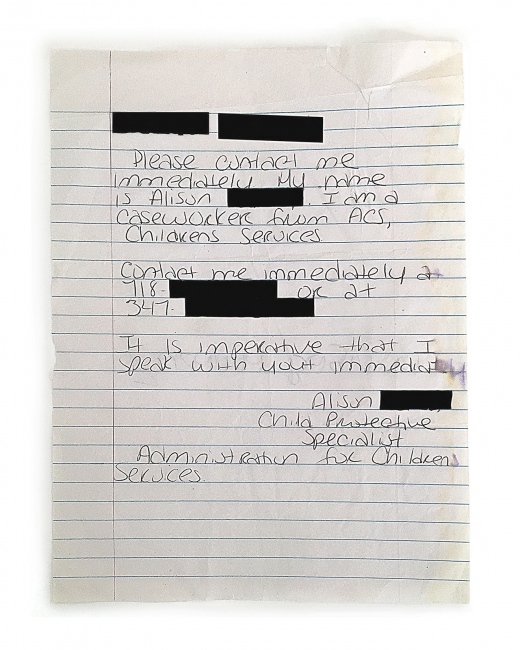 Please contact me
immediately My name
is Alison . I am a
caseworker from ACS,
Childrens Services
Contact me immediately at
718- or at
347-
It is imperative that I
speak with your immediatly
Alison
Child Protective
Specialist
Administration for Childrens
Services